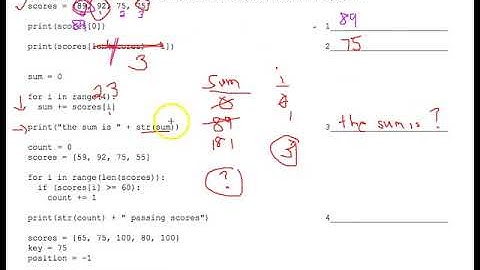 scores = [89, 92, 75, 75]
2 3
print(scores[0]) 1 89
print(scores[len(scores) - 1]) 2 75
3
sum = 0 sum i
23
for i in range(4): 0 0
sum += scores[i] 89 1
print("the sum is " + str(sum)) 181 3 3 the sum is ?
count = 0
scores = [59, 92, 75, 55]
?
for i in range(len(scores)):
if (scores[i] >= 60):
count += 1
print(str(count) + " passing scores") 4
scores = [65, 75, 100, 80, 100]
key = 75
position = -1